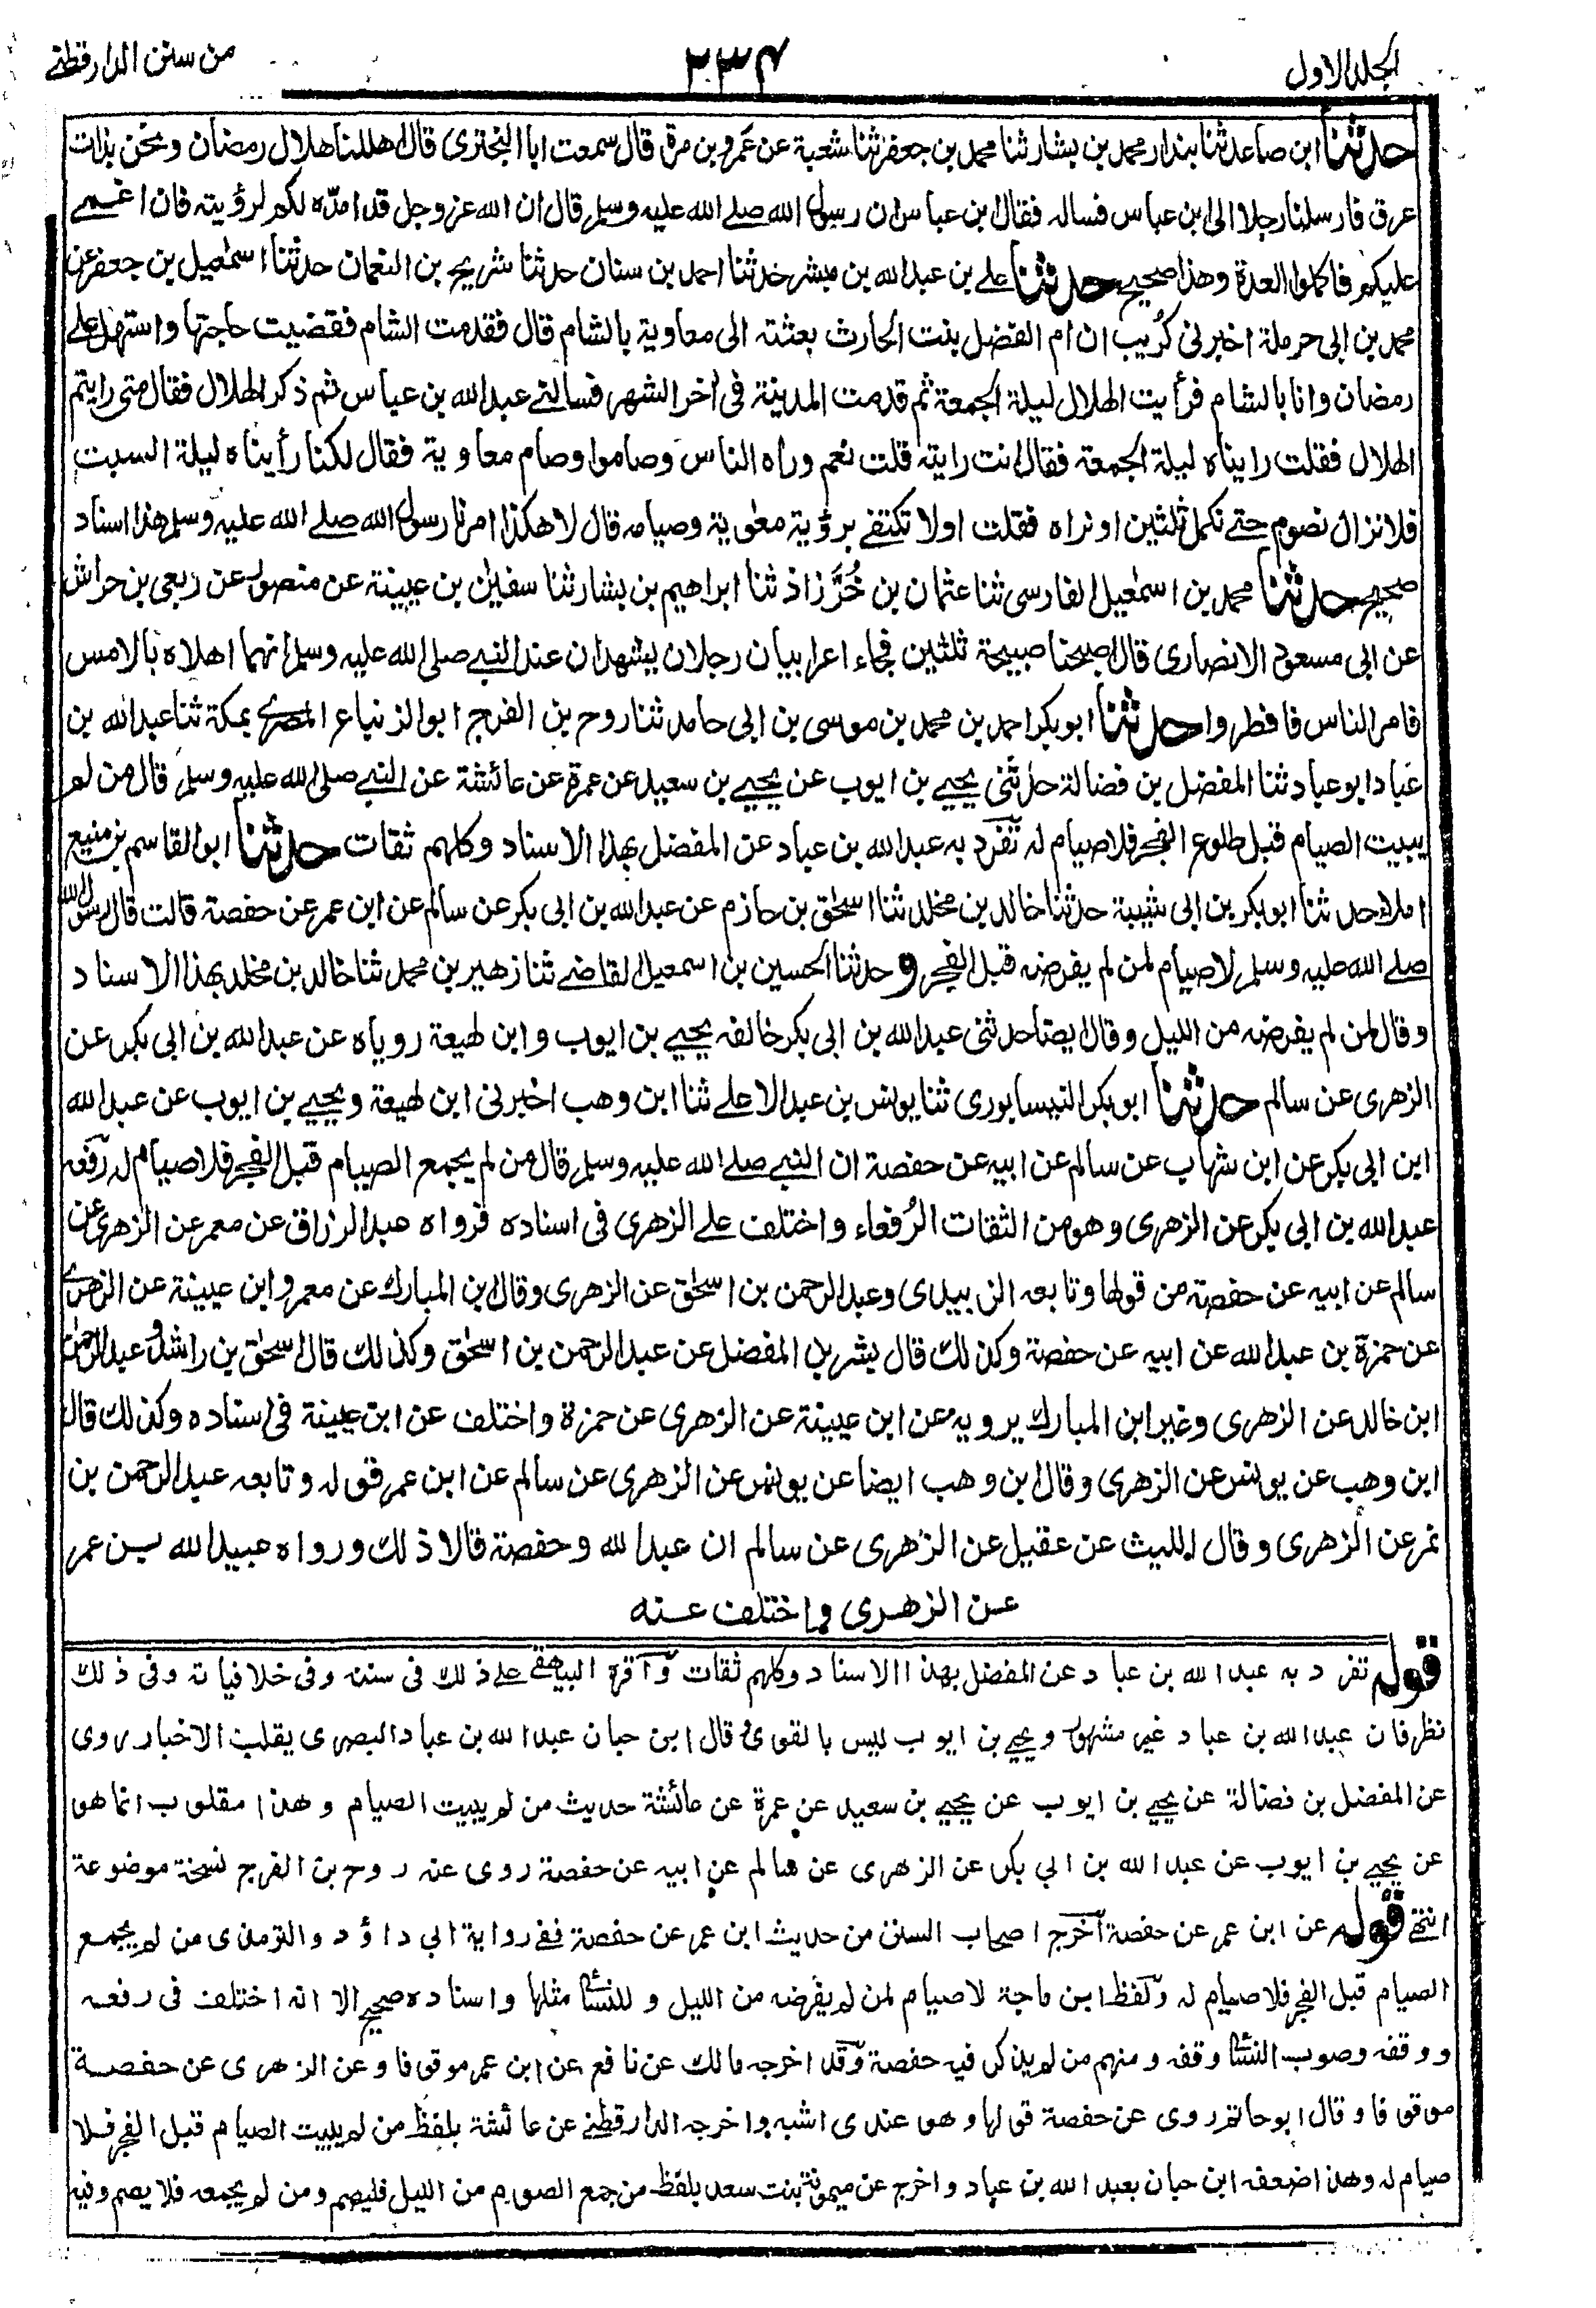 الجلد الاول
۲۳۴
من سنن الدارقطنے
حدثنا ابن صاعد ثنا بندار محمد بن بشار ثنا محمد بن جعفر ثنا شعبة عن عمرو بن مرة قال سمعت ابا البختری قال اهللنا هلال رمضان ونحن بذات
عرق فارسلنا رجلا الی ابن عباس فساله فقال ابن عباس ان رسول الله صلے الله علیه وسلم قال ان الله عز وجل قد امدّه لکم لرؤیته فان اغمے
علیکم فاکملوا العدة وهذا صحیح حدثنا علے بن عبد الله بن مبشر حدثنا احمد بن سنان حدثنا شریح بن النعمان حدثنا اسمٰعیل بن جعفر عن
محمد بن ابی حرملة اخبرنی کُریب ان ام الفضل بنت الحارث بعثته الی معاویة بالشام قال فقدمت الشام فقضیت حاجتها واستهل علے
رمضان وانا بالشام فرأیت الهلال لیلة الجمعة ثم قدمت المدینة فی اٰخر الشهر فسالنے عبد الله بن عباس ثم ذکر الهلال فقال متی رایتم
الهلال فقلت رایناه لیلة الجمعة فقال انت رایته قلت نعم وراه الناس وصاموا وصام معاویة فقال لکنا رأیناه لیلة السبت
فلا نزال نصوم حتے نکمل ثلثین او نراه فقلت اولا تکتفے برؤیة معٰویة وصیامه قال لا هکذا امرنا رسول الله صلے الله علیه وسلم هذا اسناد
صحیح حدثنا محمد بن اسمٰعیل الفارسی ثنا عثمان بن خُرَّزاذ ثنا ابراهیم بن بشار ثنا سفیٰن بن عیینة عن منصور عن ربعی بن حراش
عن ابی مسعود الانصاری قال اصبحنا صبیحة ثلثین فجاء اعرابیان رجلان یشهدان عند النبے صلی الله علیه وسلم انهما اهلاه بالامس
فامر الناس فافطروا حدثنا ابو بکر احمد بن محمد بن موسی بن ابی حامد ثنا روح بن الفرج ابو الزنباع المصرے بمکة ثنا عبد الله بن
عَباد ابو عباد ثنا المفضل بن فضالة حدثنی یحیے بن ایوب عن یحیے بن سعید عن عمرة عن عائشة عن النبے صلی الله علیه وسلم قال من لم
یبیت الصیام قبل طلوع الفجر فلا صیام له تفرد به عبد الله بن عباد عن المفضل بهذا الاسناد وکلهم ثقات حدثنا ابو القاسم بن منیع
املاء حدثنا ابو بکر بن ابی شیبة حدثنا خالد بن مخلد ثنا اسحٰق بن حازم عن عبد الله بن ابی بکر عن سالم عن ابن عمر عن حفصة قالت قال رسول الله
صلے الله علیه وسلم لا صیام لمن لم یفرضه قبل الفجر و حدثنا الحسین بن اسمعیل القاضے ثنا زهیر بن محمد ثنا خالد بن مخلد بهذا الاسناد
وقال لمن لم یفرضه من اللیل وقال ایضا حدثنی عبد الله بن ابی بکر خالفه یحیے بن ایوب وابن لهیعة رویاه عن عبد الله بن ابی بکر عن
الزهری عن سالم حدثنا ابو بکر النیسابوری ثنا یونس بن عبد الاعلے ثنا ابن وهب اخبرنی ابن لهیعة ویحیے بن ایوب عن عبد الله
ابن ابی بکر عن ابن شهاب عن سالم عن ابیه عن حفصة ان النبے صلے الله علیه وسلم قال من لم یجمع الصیام قبل الفجر فلا صیام له رفعه
عبد الله بن ابی بکر عن الزهری وهو من الثقات الرُفعاء واختلف علے الزهری فی اسناده فرواه عبد الرزاق عن معمر عن الزهری عن
سالم عن ابیه عن حفصة من قولها وتابعه الزبیدی وعبد الرحمن بن اسحٰق عن الزهری وقال ابن المبارك عن معمر وابن عیینة عن الزهرے
عن حمزة بن عبد الله عن ابیه عن حفصة وکذلك قال بشر بن المفضل عن عبد الرحمن بن اسحٰق وکذلك قال اسحٰق بن راشد وعبد الرحمٰن
ابن خالد عن الزهری وغیر ابن المبارك یرویه عن ابن عیینة عن الزهری عن حمزة واختلف عن ابن عیینة فی اسناده وکذلك قال
ابن وهب عن یونس عن الزهری وقال ابن وهب ایضا عن یونس عن الزهری عن سالم عن ابن عمر قوله وتابعه عبد الرحمن بن
نمر عن الزهری وقال اللیث عن عقیل عن الزهری عن سالم ان عبد الله وحفصة قالا ذلك ورواه عبید الله بن عمر
عن الزهری واختلف عنه
قوله تفرد به عبد الله بن عباد عن المفضل بهذا الاسناد وکلهم ثقات وآقره البیهقے علے ذلك فی سننه وفی خلافیاته وفی ذلك
نظر فان عبد الله بن عباد غیر مشهور ویحیے بن ایوب لیس بالقوی قال ابن حبان عبد الله بن عباد البصری یقلب الاخبار روی
عن المفضل بن فضالة عن یحیے بن ایوب عن یحیے بن سعید عن عمرة عن عائشة حدیث من لم یبیت الصیام وهذا مقلوب انما هو
عن یحیے بن ایوب عن عبد الله بن ابی بکر عن الزهری عن سالم عن ابیه عن حفصة روی عنه روح بن الفرج نسخة موضوعة
انتهے قوله عن ابن عمر عن حفصة آخرج اصحاب السنن من حدیث ابن عمر عن حفصة ففے روایة ابی داؤد والترمذی من لم یجمع
الصیام قبل الفجر فلا صیام له ولفظ ابن ماجة لا صیام لمن لم یفرضه من اللیل وللنسائی مثلها واسناده صحیح الا انه اختلف فی رفعه
ووقفه وصوب النسائی وقفه ومنهم من لم یذکر فیه حفصة وقد اخرجه مالك عن نافع عن ابن عمر موقوفا وعن الزهری عن حفصة
موقوفا وقال ابو حاتم روی عن حفصة قولها وهو عندی اشبه واخرجه الدارقطنے عن عائشة بلفظ من لم یبیت الصیام قبل الفجر فلا
صیام له وهذا ضعفه ابن حبان بعبد الله بن عباد واخرج عن میمونة بنت سعد بلفظ من جمع الصوم من اللیل فلیصم ومن لم یجمعه فلا یصم وفیه